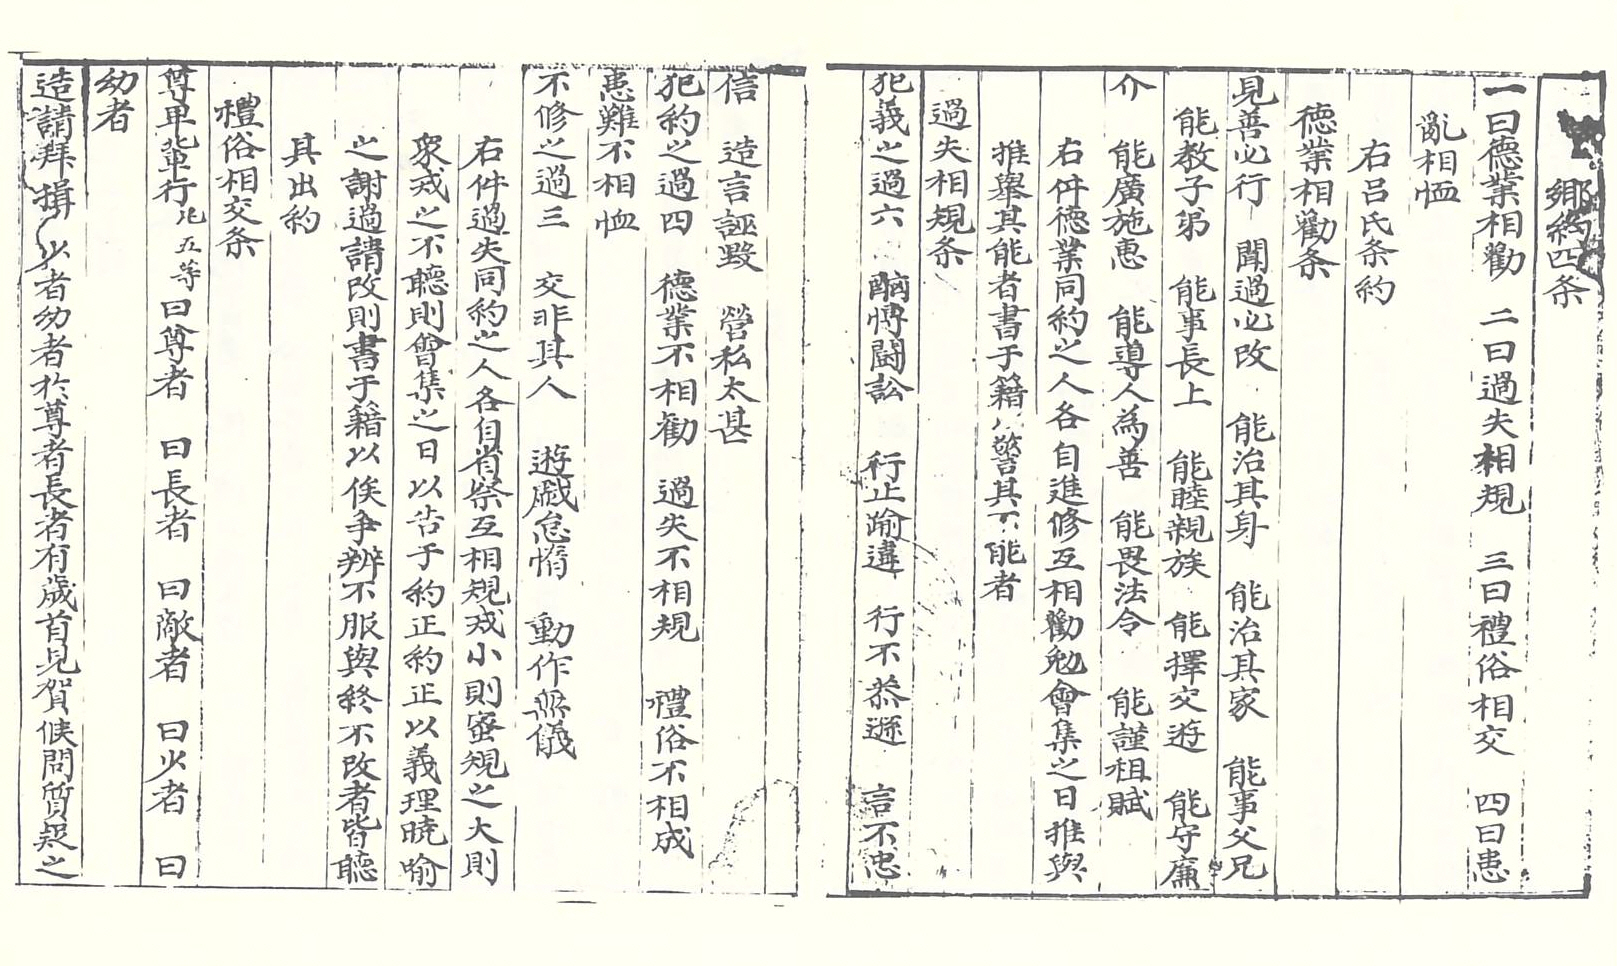 鄉約四条
一曰德業相勸　二曰過失相規　三曰禮俗相交　四曰患
亂相恤
右呂氏条約
德業相勸条
見善必行　聞過必改　能治其身　能治其家　能事父兄
能教子弟　能事長上　能睦親族　能擇交遊　能守廉
介　能廣施惠　能導人為善　能畏法令　能謹租賦
右件德業同約之人各自進修互相勸勉會集之日推與
推舉其能者書于籍以警其不能者
過失相規条
犯義之過六　酗博鬪訟　行止踰違　行不恭遜　言不忠
信　造言誣毀　營私太甚
犯約之過四　德業不相勸　過失不相規　禮俗不相成
患難不相恤
不修之過三　交非其人　遊戱怠惰　動作無儀
右件過失同約之人各自省察互相規戒小則密規之大則
衆戒之不聽則會集之日以告于約正約正以義理曉喻
之謝過請改則書于籍以俟爭辨不服與終不改者皆聽
其出約
禮俗相交条
尊卑輩行凡五等曰尊者　曰長者　曰敵者　曰少者　曰
幼者
造請拜揖　少者幼者於尊者長者有歲首見賀候問質疑之